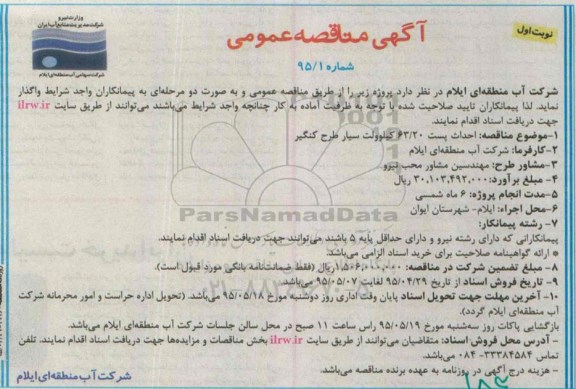 وزارت نیرو
شرکت مدیریت منابع آب ایران
شرکت سهامی آب منطقه‌ای ایلام
نوبت اول
آگهی مناقصه عمومی
شماره ۹۵/۱
شرکت آب منطقه‌ای ایلام در نظر دارد پروژه زیر را از طریق مناقصه عمومی و به صورت دو مرحله‌ای به پیمانکاران واجد شرایط واگذار
نماید. لذا پیمانکاران تایید صلاحیت شده با توجه به ظرفیت آماده به کار چنانچه واجد شرایط می‌باشند می‌توانند از طریق سایت ilrw.ir
جهت دریافت اسناد اقدام نمایند.
۱-موضوع مناقصه: احداث پست ۶۳/۲۰ کیلوولت سیار طرح کنگیر
۲-کارفرما: شرکت آب منطقه‌ای ایلام
۳-مشاور طرح: مهندسین مشاور محب نیرو
۴- مبلغ برآورد: ۳۰,۱۰۳,۴۹۲,۰۰۰ ریال
۵-مدت انجام پروژه: ۶ ماه شمسی
۶-محل اجراء: ایلام- شهرستان ایوان
۷- رشته پیمانکار:
پیمانکارانی که دارای رشته نیرو و دارای حداقل پایه ۵ باشند می‌توانند جهت دریافت اسناد اقدام نمایند.
* ارائه گواهینامه صلاحیت برای خرید اسناد الزامی می‌باشد.
۸- مبلغ تضمین شرکت در مناقصه: ریال (فقط ضمانت‌نامه بانکی مورد قبول است).
۹- تاریخ فروش اسناد از تاریخ ۹۵/۰۴/۲۹ لغایت ۹۵/۰۵/۰۷ می‌باشد.
۱۰- آخرین مهلت جهت تحویل اسناد پایان وقت اداری روز دوشنبه مورخ ۹۵/۰۵/۱۸ می‌باشد. (تحویل اداره حراست و امور محرمانه شرکت
آب منطقه‌ای ایلام گردد).
بازگشایی پاکات روز سه‌شنبه مورخ ۹۵/۰۵/۱۹ راس ساعت ۱۱ صبح در محل سالن جلسات شرکت آب منطقه‌ای ایلام می‌باشد.
- آدرس محل فروش اسناد: متقاضیان می‌توانند از طریق سایت ilrw.ir بخش مناقصات و مزایده‌ها جهت دریافت اسناد اقدام نمایند. تلفن
تماس ۳۳۳۸۴۵۸۴-۰۸۴ می‌باشد.
- هزینه درج آگهی در روزنامه به عهده برنده مناقصه می‌باشد.
شرکت آب منطقه‌ای ایلام
ParsNamadData